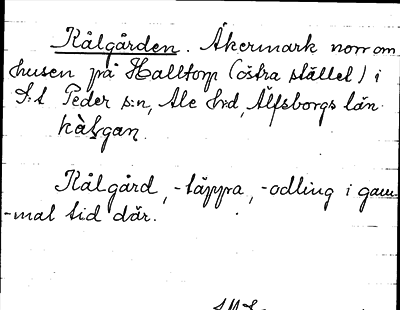 Kålgården. Åkermark norr om
husen på Halltorp (östra stället) i
S:t Peder s:n, Ale hd, Älfsborgs län.
Kålgård, -täppa, -odling i gam-
-mal tid där.